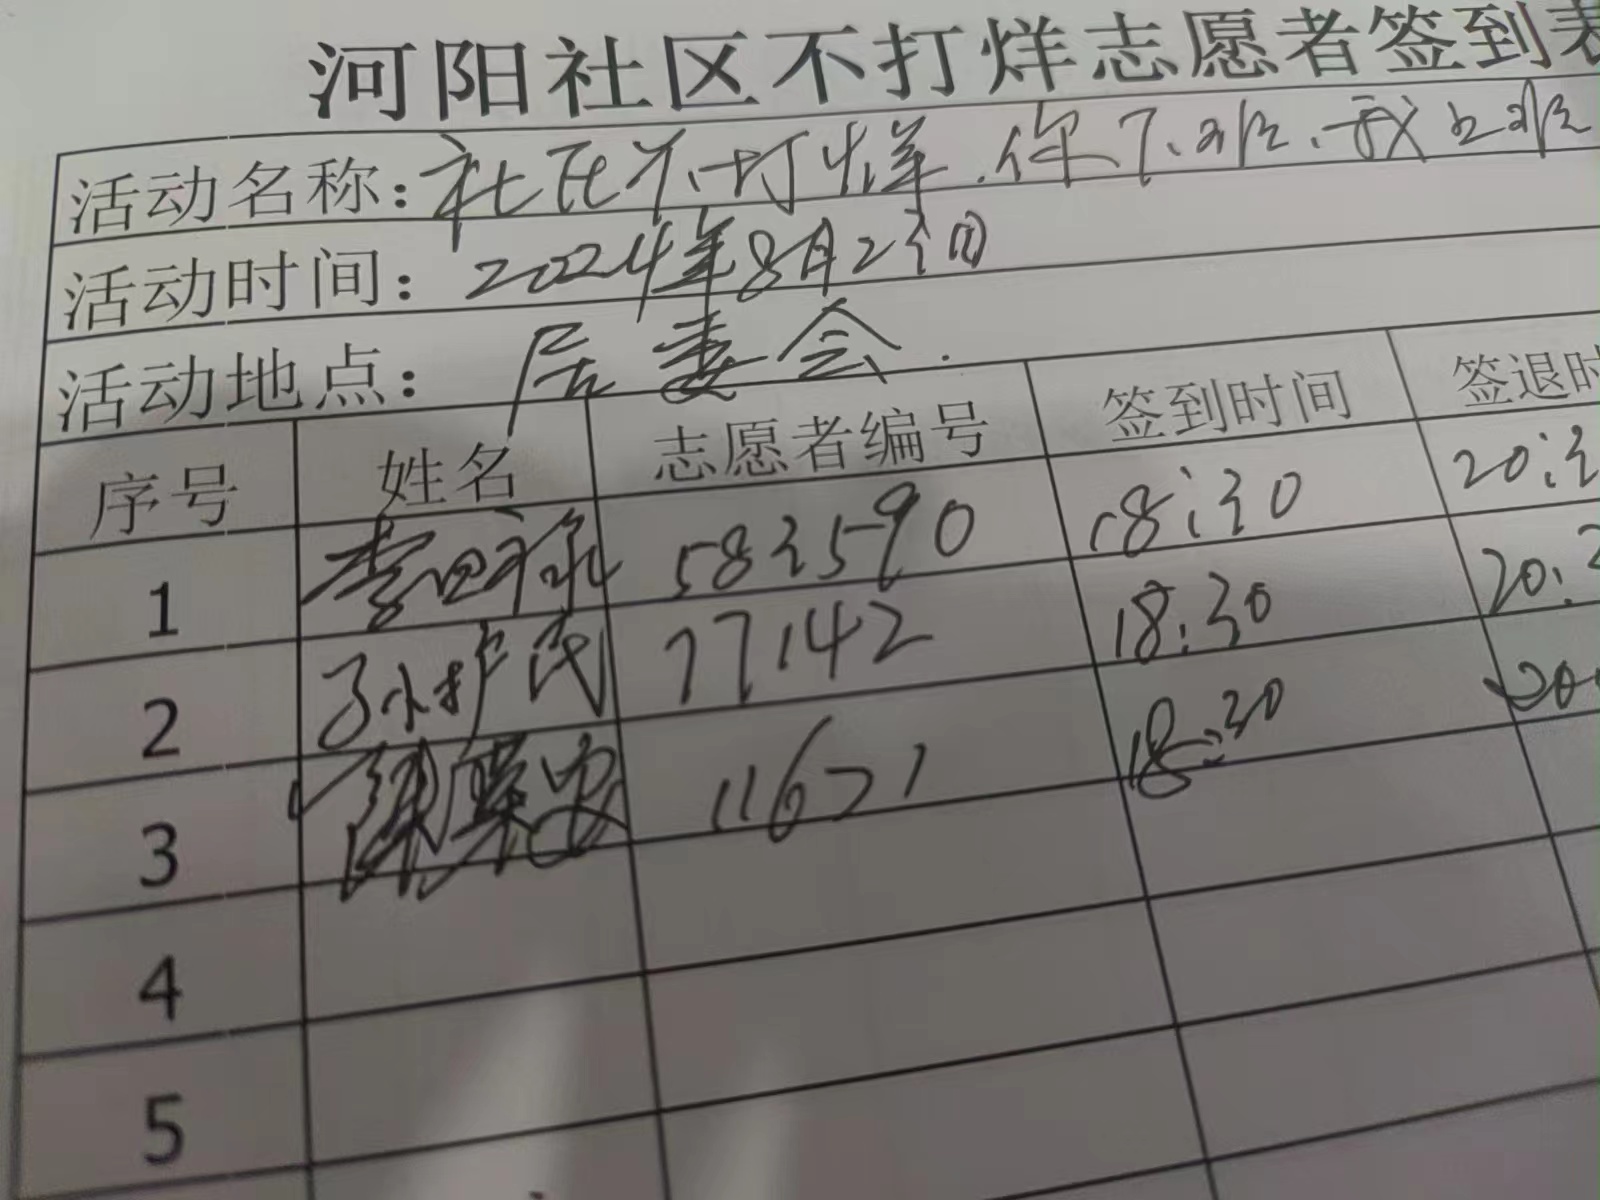 河阳社区不打烊志愿者签到表
活动名称：社区不打烊.你下班.我上班
活动时间：2024年8月23日
活动地点：居委会.
序号 姓名 志愿者编号 签到时间 签退时
1 583590 18:30 20:3
2 孙护民 77142 18:30 20:3
3 18:30 20
4
5